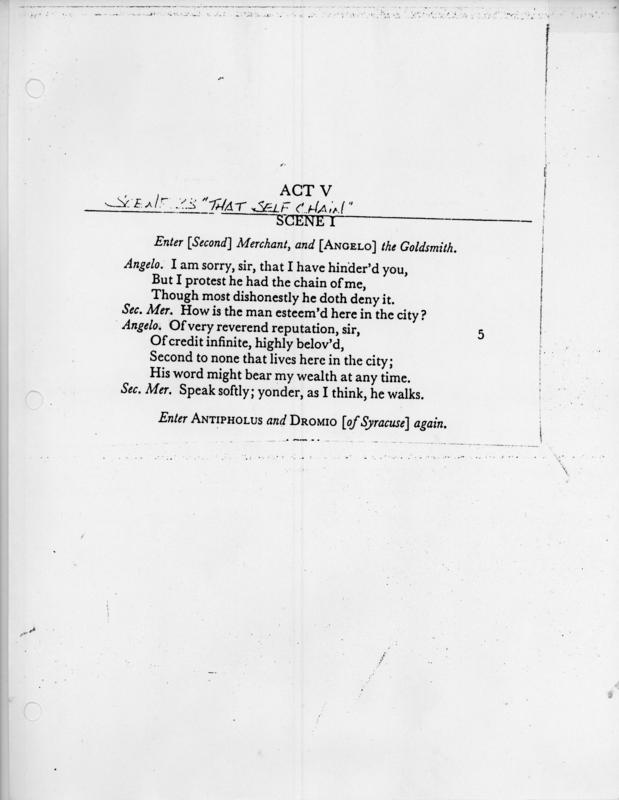 ACT V
SCENE 23 "THAT SELF CHAIN"
SCENE I
Enter [Second] Merchant, and [ANGELO] the Goldsmith.
Angelo. I am sorry, sir, that I have hinder'd you,
But I protest he had the chain of me,
Though most dishonestly he doth deny it.
Sec. Mer. How is the man esteem'd here in the city?
Angelo. Of very reverend reputation, sir, 5
Of credit infinite, highly belov'd,
Second to none that lives here in the city;
His word might bear my wealth at any time.
Sec. Mer. Speak softly; yonder, as I think, he walks.
Enter ANTIPHOLUS and DROMIO [of Syracuse] again.